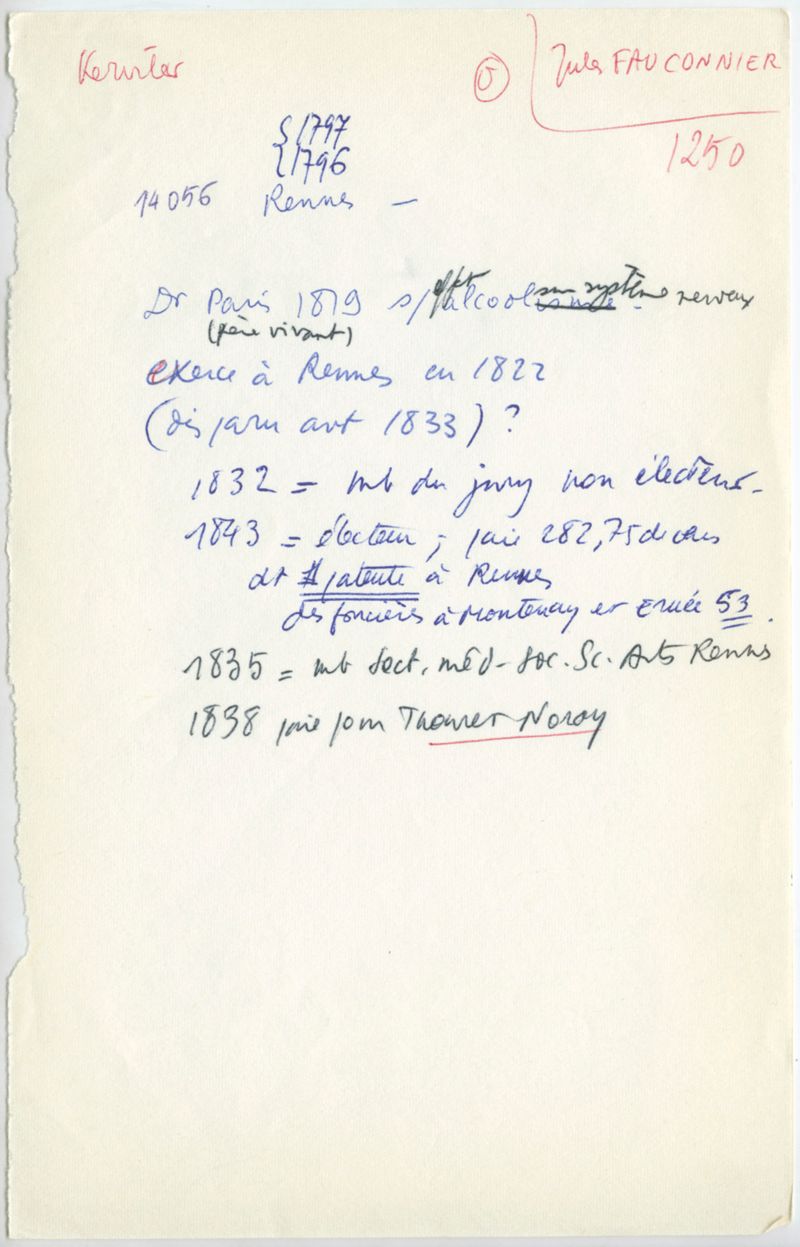 Jules FAUCONNIER
1250
1797
1796
14056 Rennes —
Dr Paris 1819 s/ effet alcool sur système nerveux
(père vivant)
exerce à Rennes en 1822
(disparu avt 1833) ?
1832 = mb du jury non électeur -
1843 = électeur ; paie 282,75 de
dt patente à Rennes
des foncières à Montenay et Ernée 53.
1835 = mb Sect. méd - Soc. Sc. Arts Rennes
1838 paie pour Thouret-Noroy